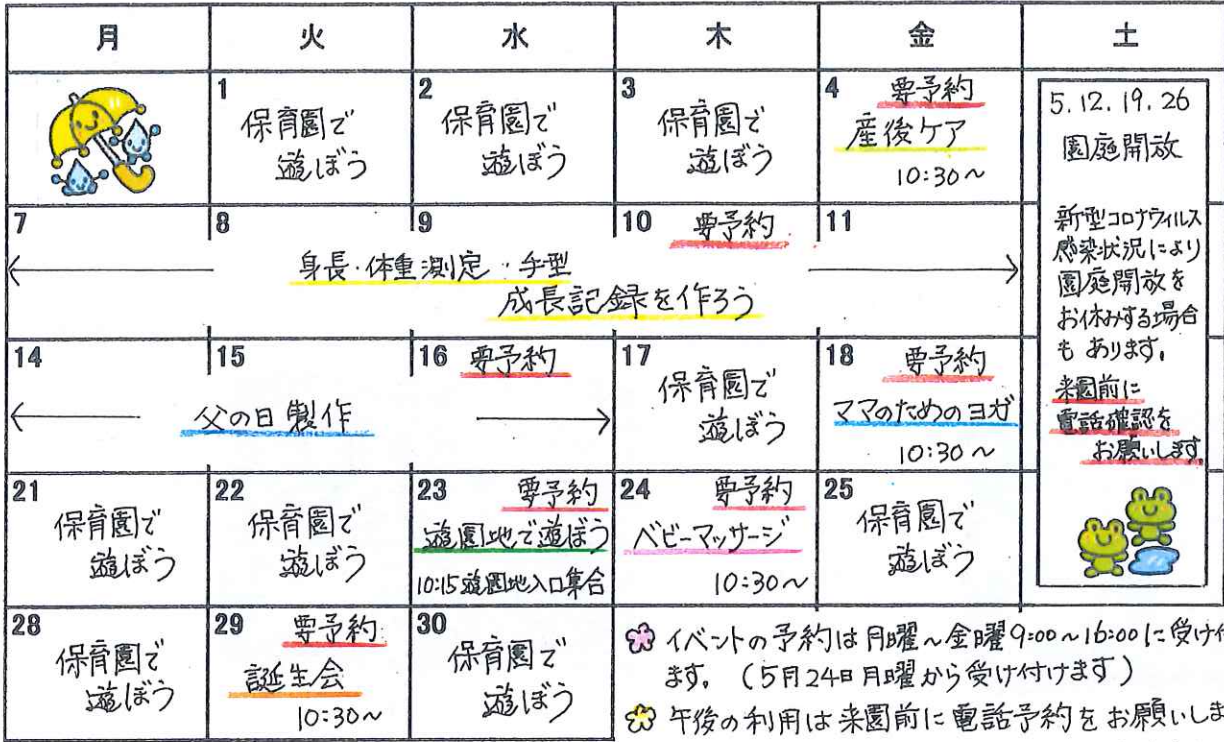 月 火 水 木 金 土
1
保育園で
遊ぼう
2
保育園で
遊ぼう
3
保育園で
遊ぼう
4 要予約
産後ケア
10:30～
5.12.19.26
園庭開放
新型コロナウィルス
感染状況により
園庭開放を
お休みする場合
も あります。
来園前に
電話確認を
お願いします
7 8 9 10 要予約 11
身長・体重測定・手型
成長記録を作ろう
14 15 16 要予約
父の日製作
17
保育園で
遊ぼう
18 要予約
ママのためのヨガ
10:30～
21
保育園で
遊ぼう
22
保育園で
遊ぼう
23 要予約
遊園地で遊ぼう
10:15遊園地入口集合
24 要予約
ベビーマッサージ
10:30～
25
保育園で
遊ぼう
28
保育園で
遊ぼう
29 要予約
誕生会
10:30～
30
保育園で
遊ぼう
イベントの予約は月曜～金曜9:00～16:00に受け付
ます。（5月24日月曜から受け付けます）
午後の利用は来園前に電話予約をお願いしま